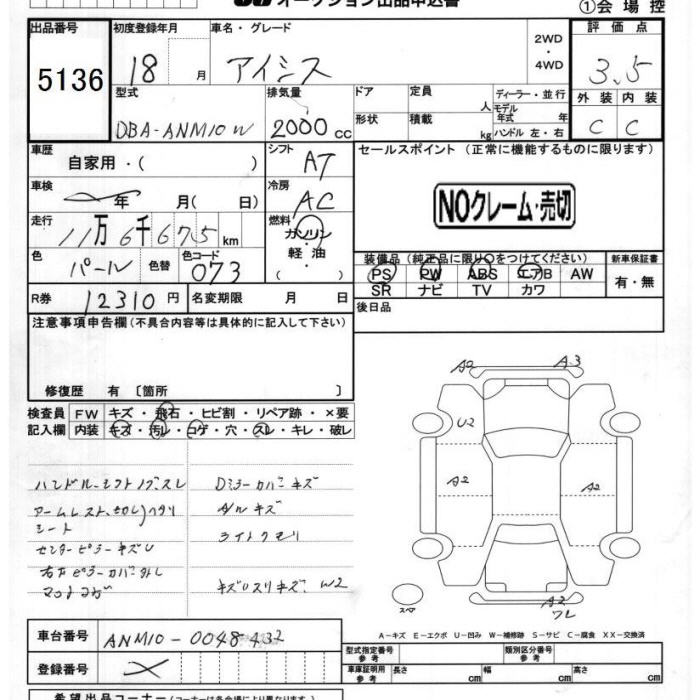 オークション出品申込書
①会場控
出品番号 初度登録年月 車名・グレード 2WD・4WD 評価点
5136 18 月 アイシス 3.5
型式 排気量 ドア 定員 人 ディーラー・並行 外装 内装
DBA-ANM10W 2000cc 形状 積載 kg モデル年式 年 ハンドル 左・右 C C
車歴 自家用・( ) シフト AT セールスポイント (正常に機能するものに限ります)
車検 年 月( 日) 冷房 AC NOクレーム・売切
走行 11万6千675km 燃料 ガソリン
軽油
( )
色 パール 色替 色コード 073
装備品 (純正品に限り○をつけてください) 新車保証書
PS PW ABS エアB AW 有・無
SR ナビ TV カワ
R券 12310円 名変期限 月 日 後日品
注意事項申告欄 (不具合内容等は具体的に記入して下さい)
修復歴 有 〔箇所 〕
検査員 FW キズ・飛石・ヒビ割・リペア跡・×要
記入欄 内装 キズ・汚レ・コゲ・穴・スレ・キレ・破レ
ハンドル-シフトノブスレ Dミラーカバーキズ
シート ライトクモリ
センターピラーキズU
W2
A2 A3
U2
A2 A2
スペア A2
ワレ
A-キズ E-エクボ U-凹み W-補修跡 S-サビ C-腐食 XX-交換済
車台番号 ANM10-0048432
登録番号
型式指定番号 参考 類別区分番号 参考
車庫証明用 参考 長さ cm 幅 cm 高さ cm
希望出品コーナー (コーナーは各会場により異なります)